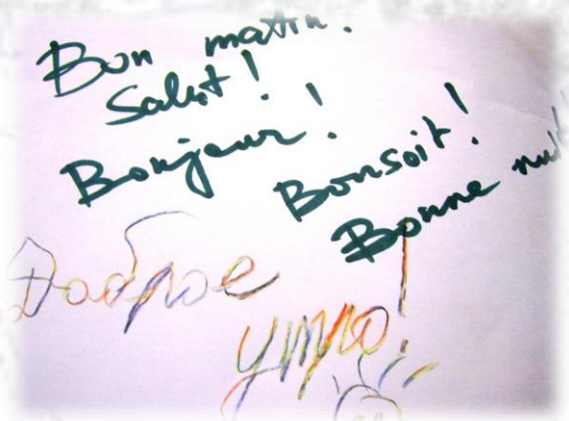 Bon matin!
Salut!
Bonjour!
Bonsoit!
Bonne nuit
Доброе
утро!